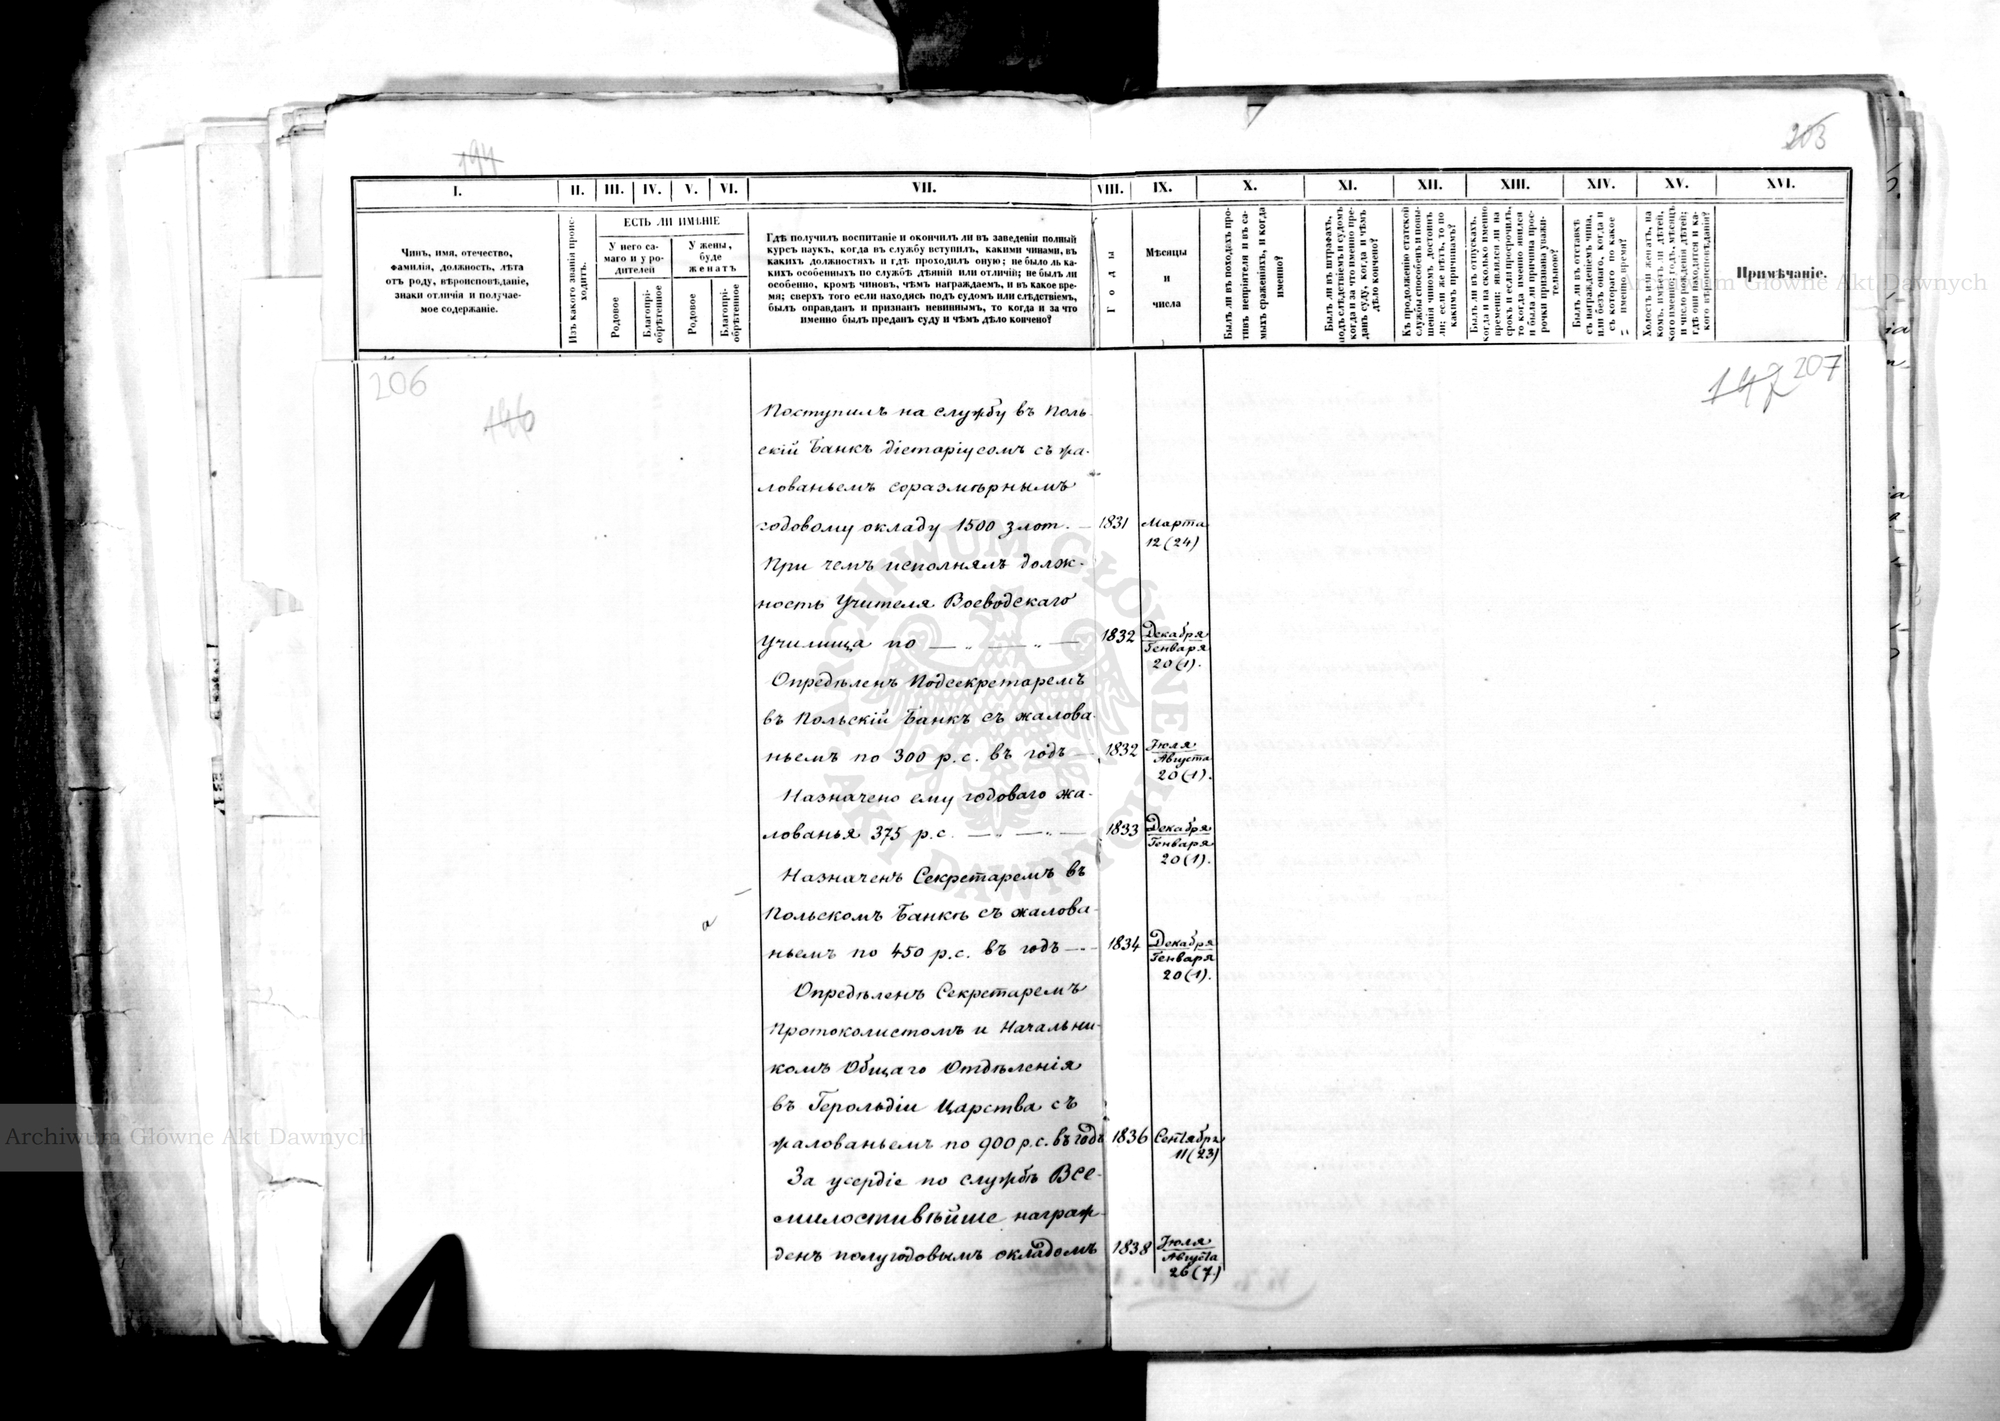 194
203
I.
II.
III.
IV.
V.
VI.
VII.
VIII.
IX.
X.
XI.
XII.
XIII.
XIV.
XV.
XVI.
Чинъ, имя, отечество,
фамилія, должность, лѣта
отъ роду, вѣроисповѣданіе,
знаки отличія и получае-
мое содержаніе.
Изъ какого званія проис-
ходитъ.
ЕСТЬ ЛИ ИМѢНІЕ
У него са-
маго и у ро-
дителей
У жены,
буде
женатъ
Родовое
Благопрі-
обрѣтенное
Родовое
Благопрі-
обрѣтенное
Гдѣ получилъ воспитаніе и окончилъ ли въ заведеніи полный
курсъ наукъ, когда въ службу вступилъ, какими чинами, въ
какихъ должностяхъ и гдѣ проходилъ оную; не было ль ка-
кихъ особенныхъ по службѣ дѣяній или отличій; не былъ ли
особенно, кромѣ чиновъ, чѣмъ награждаемъ, и въ какое вре-
мя; сверхъ того если находясь подъ судомъ или слѣдствіемъ,
былъ оправданъ и признанъ невиннымъ, то когда и за что
именно былъ преданъ суду и чѣмъ дѣло кончено?
Годы
Мѣсяцы
и
числа
Былъ ли въ походахъ про-
тивъ непріятеля и въ са-
мыхъ сраженіяхъ, и когда
именно?
Былъ ли въ штрафахъ,
подъ слѣдствіемъ и судомъ,
когда и за что именно пре-
данъ суду, когда и чѣмъ
дѣло кончено?
Къ продолженію статской
службы способенъ и повы-
шенія чиномъ достоинъ
ли; если же нѣтъ, то по
какимъ причинамъ?
Былъ ли въ отпускахъ,
когда и на сколько именно
времени; являлся ли на
срокъ и если просрочилъ,
то когда именно явился
и была ли причина прос-
рочки признана уважи-
тельною?
Былъ ли въ отставкѣ
съ награжденіемъ чина,
или безъ онаго, когда и
съ котораго по какое
именно время?
Холостъ или женатъ, на
комъ, имѣетъ ли дѣтей,
кого именно; годъ, мѣсяцъ
и число рожденія дѣтей;
гдѣ они находятся и ка-
кого вѣроисповѣданія?
Примѣчаніе.
206
146
147
207
Поступилъ на службу въ Поль-
скій Банкъ діетаріусомъ съ жа-
лованьемъ соразмѣрнымъ
годовому окладу 1500 злот. — 1831 Марта
12 (24)
При чемъ исполнялъ долж-
ность Учителя Воеводскаго
Училища по — „ — „ — 1832 Декабря
Генваря
20 (1).
Опредѣленъ Подсекретаремъ
въ Польскій Банкъ съ жалова-
ньемъ по 300 р. с. въ годъ — 1832 Іюля
Августа
20 (1).
Назначено ему годоваго жа-
лованья 375 р. с. — „ — „ — 1833 Декабря
Генваря
20 (1).
Назначенъ Секретаремъ въ
Польскомъ Банкѣ съ жалова-
ньемъ по 450 р. с. въ годъ — 1834 Декабря
Генваря
20 (1).
Опредѣленъ Секретаремъ
Протоколистомъ и Начальни-
комъ Общаго Отдѣленія
въ Герольдіи Царства съ
жалованьемъ по 900 р. с. въ годъ 1836 Сентября
11 (23)
За усердіе по службѣ Все-
милостивѣйше награж-
денъ полугодовымъ окладомъ 1838 Іюля
Августа
26 (7.)
Archiwum Główne Akt Dawnych
Archiwum Główne Akt Dawnych
ARCHIWUM GŁÓWNE AKT DAWNYCH